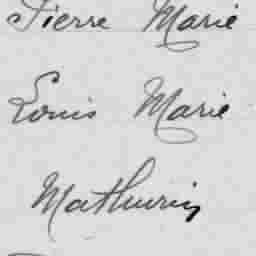 Pierre Marie
Louis Marie
Mathurin